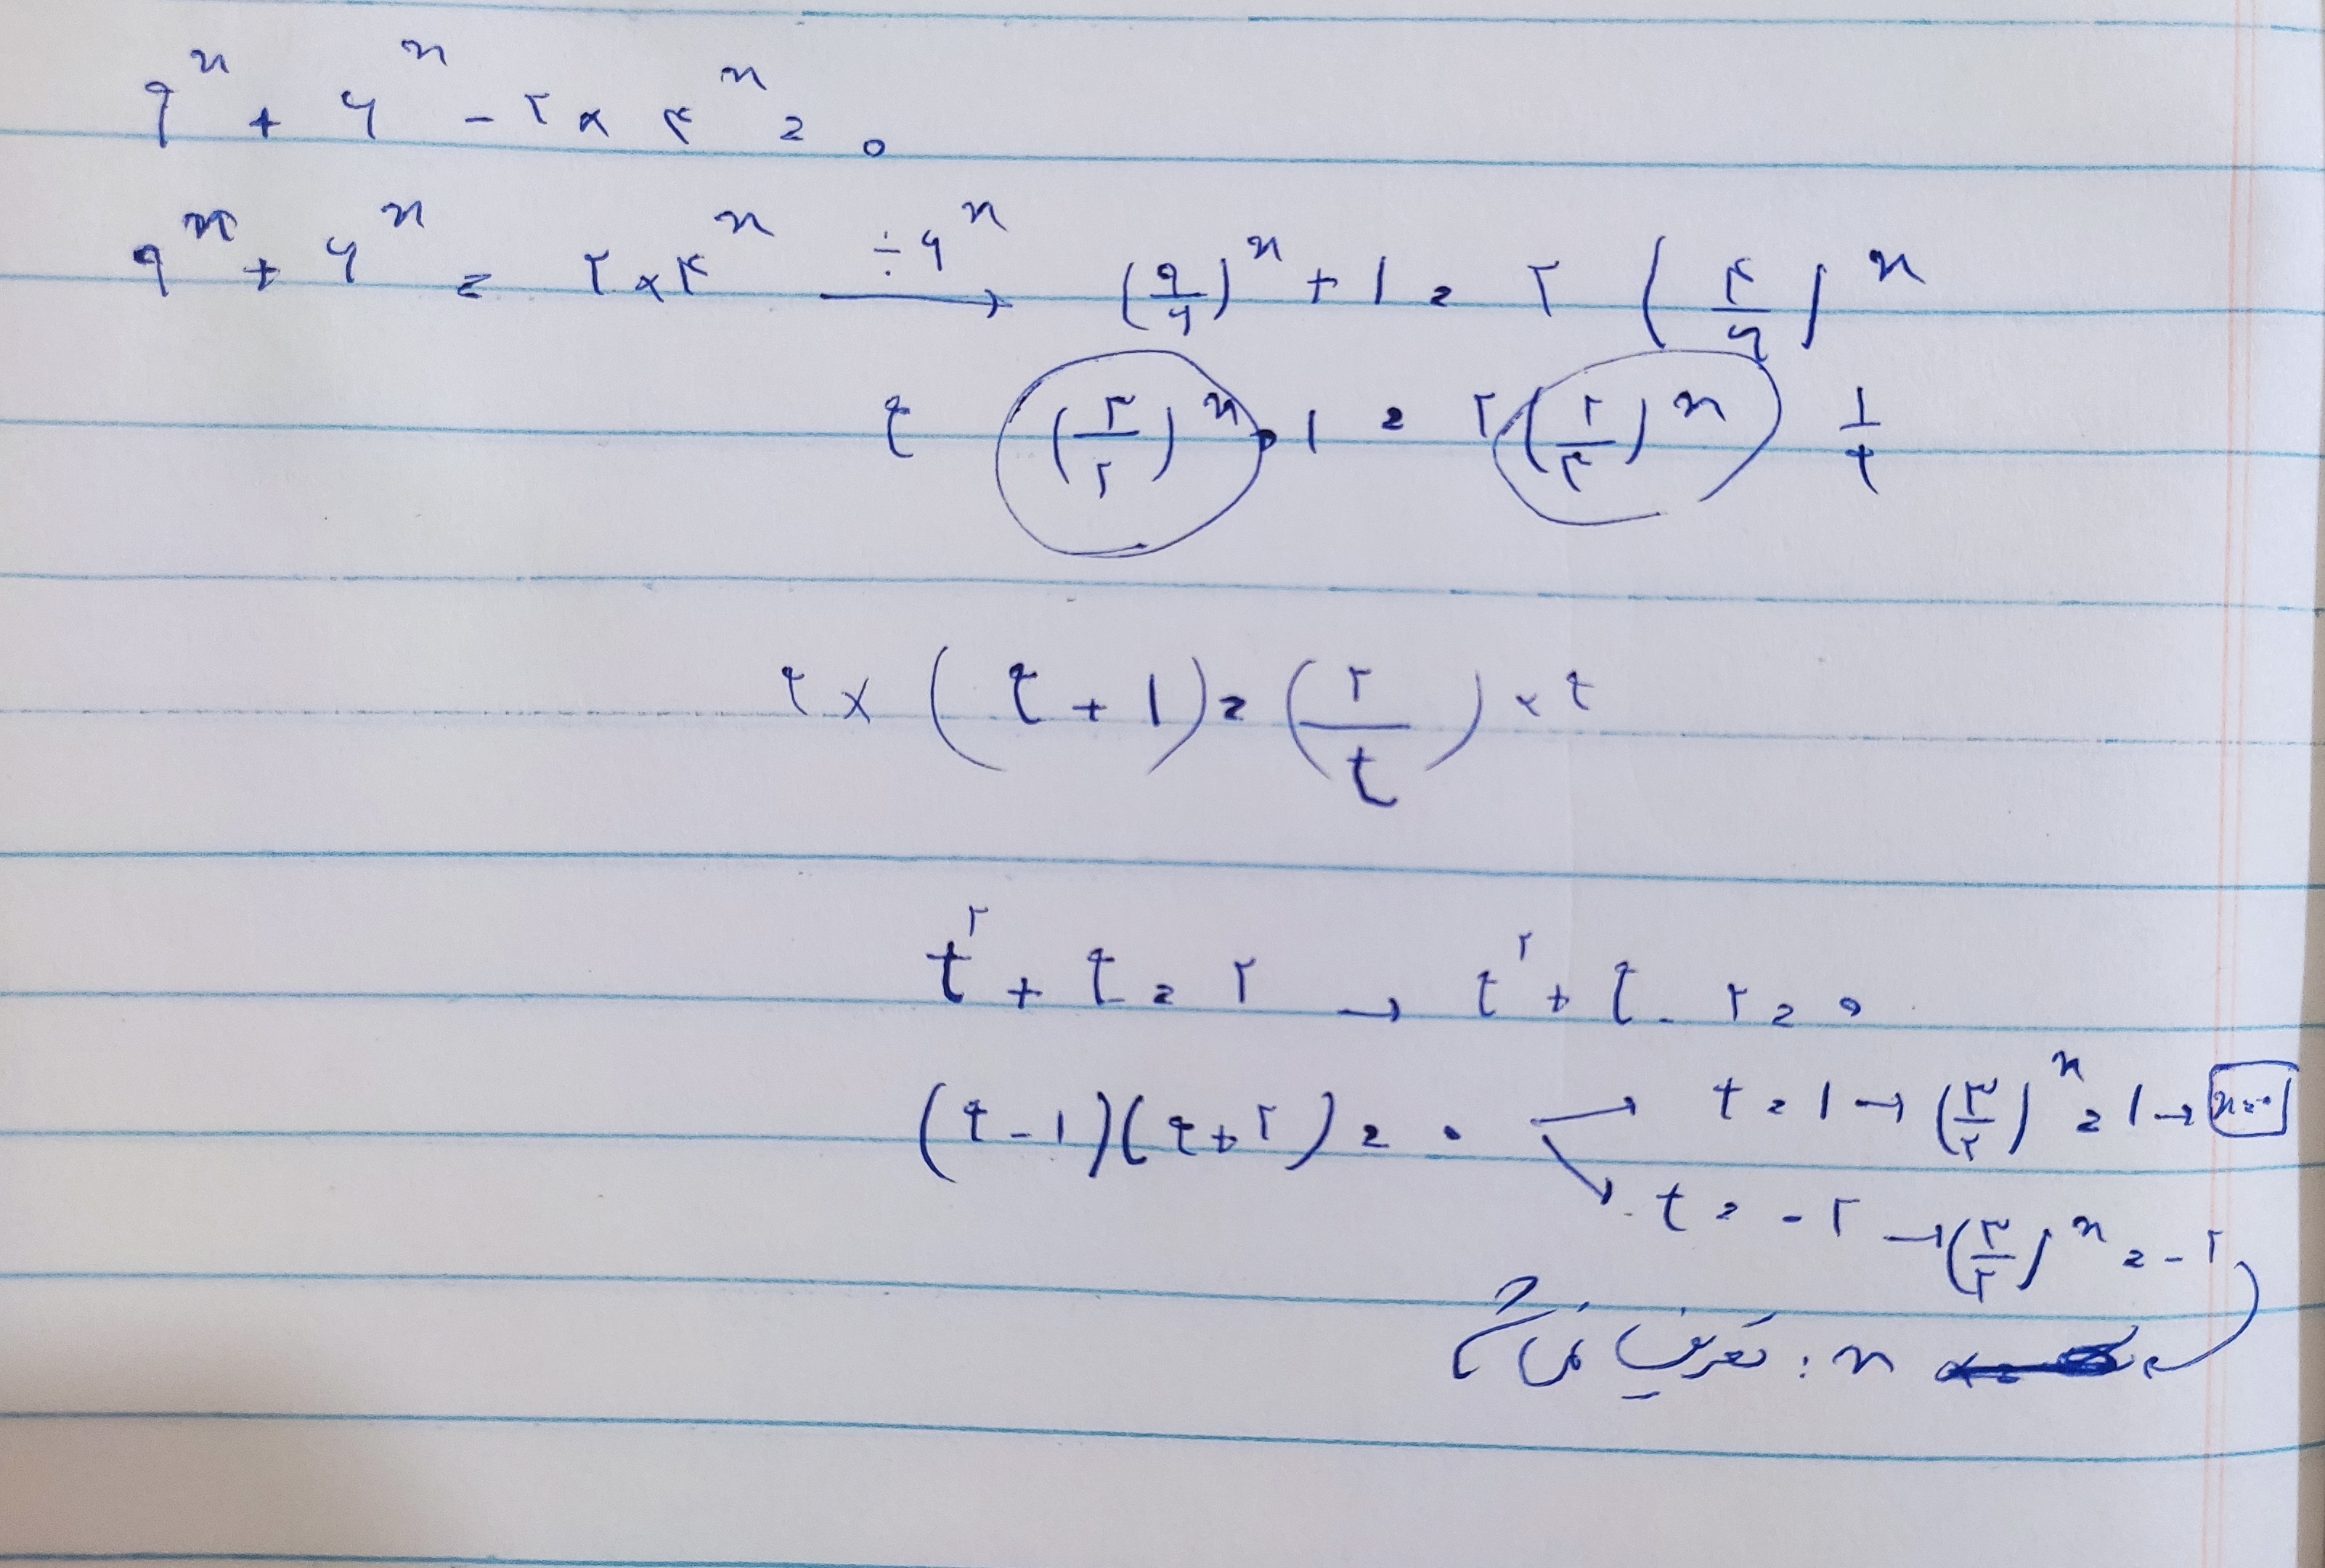 ۹^x + ۶^x - ۲ × ۴^x = ۰
۹^x + ۶^x = ۲ × ۴^x ÷۶^x → (۹/۶)^x + ۱ = ۲ (۴/۶)^x
t (۳/۲)^x + ۱ = ۲ (۲/۳)^x ۱/t
t × (t + ۱) = (۲/t) × t
t^۲ + t = ۲ → t^۲ + t - ۲ = ۰
(t - ۱)(t + ۲) = ۰ → t = ۱ → (۳/۲)^x = ۱ → x = ۰
→ t = -۲ → (۳/۲)^x = -۲
x : تعریف نمی